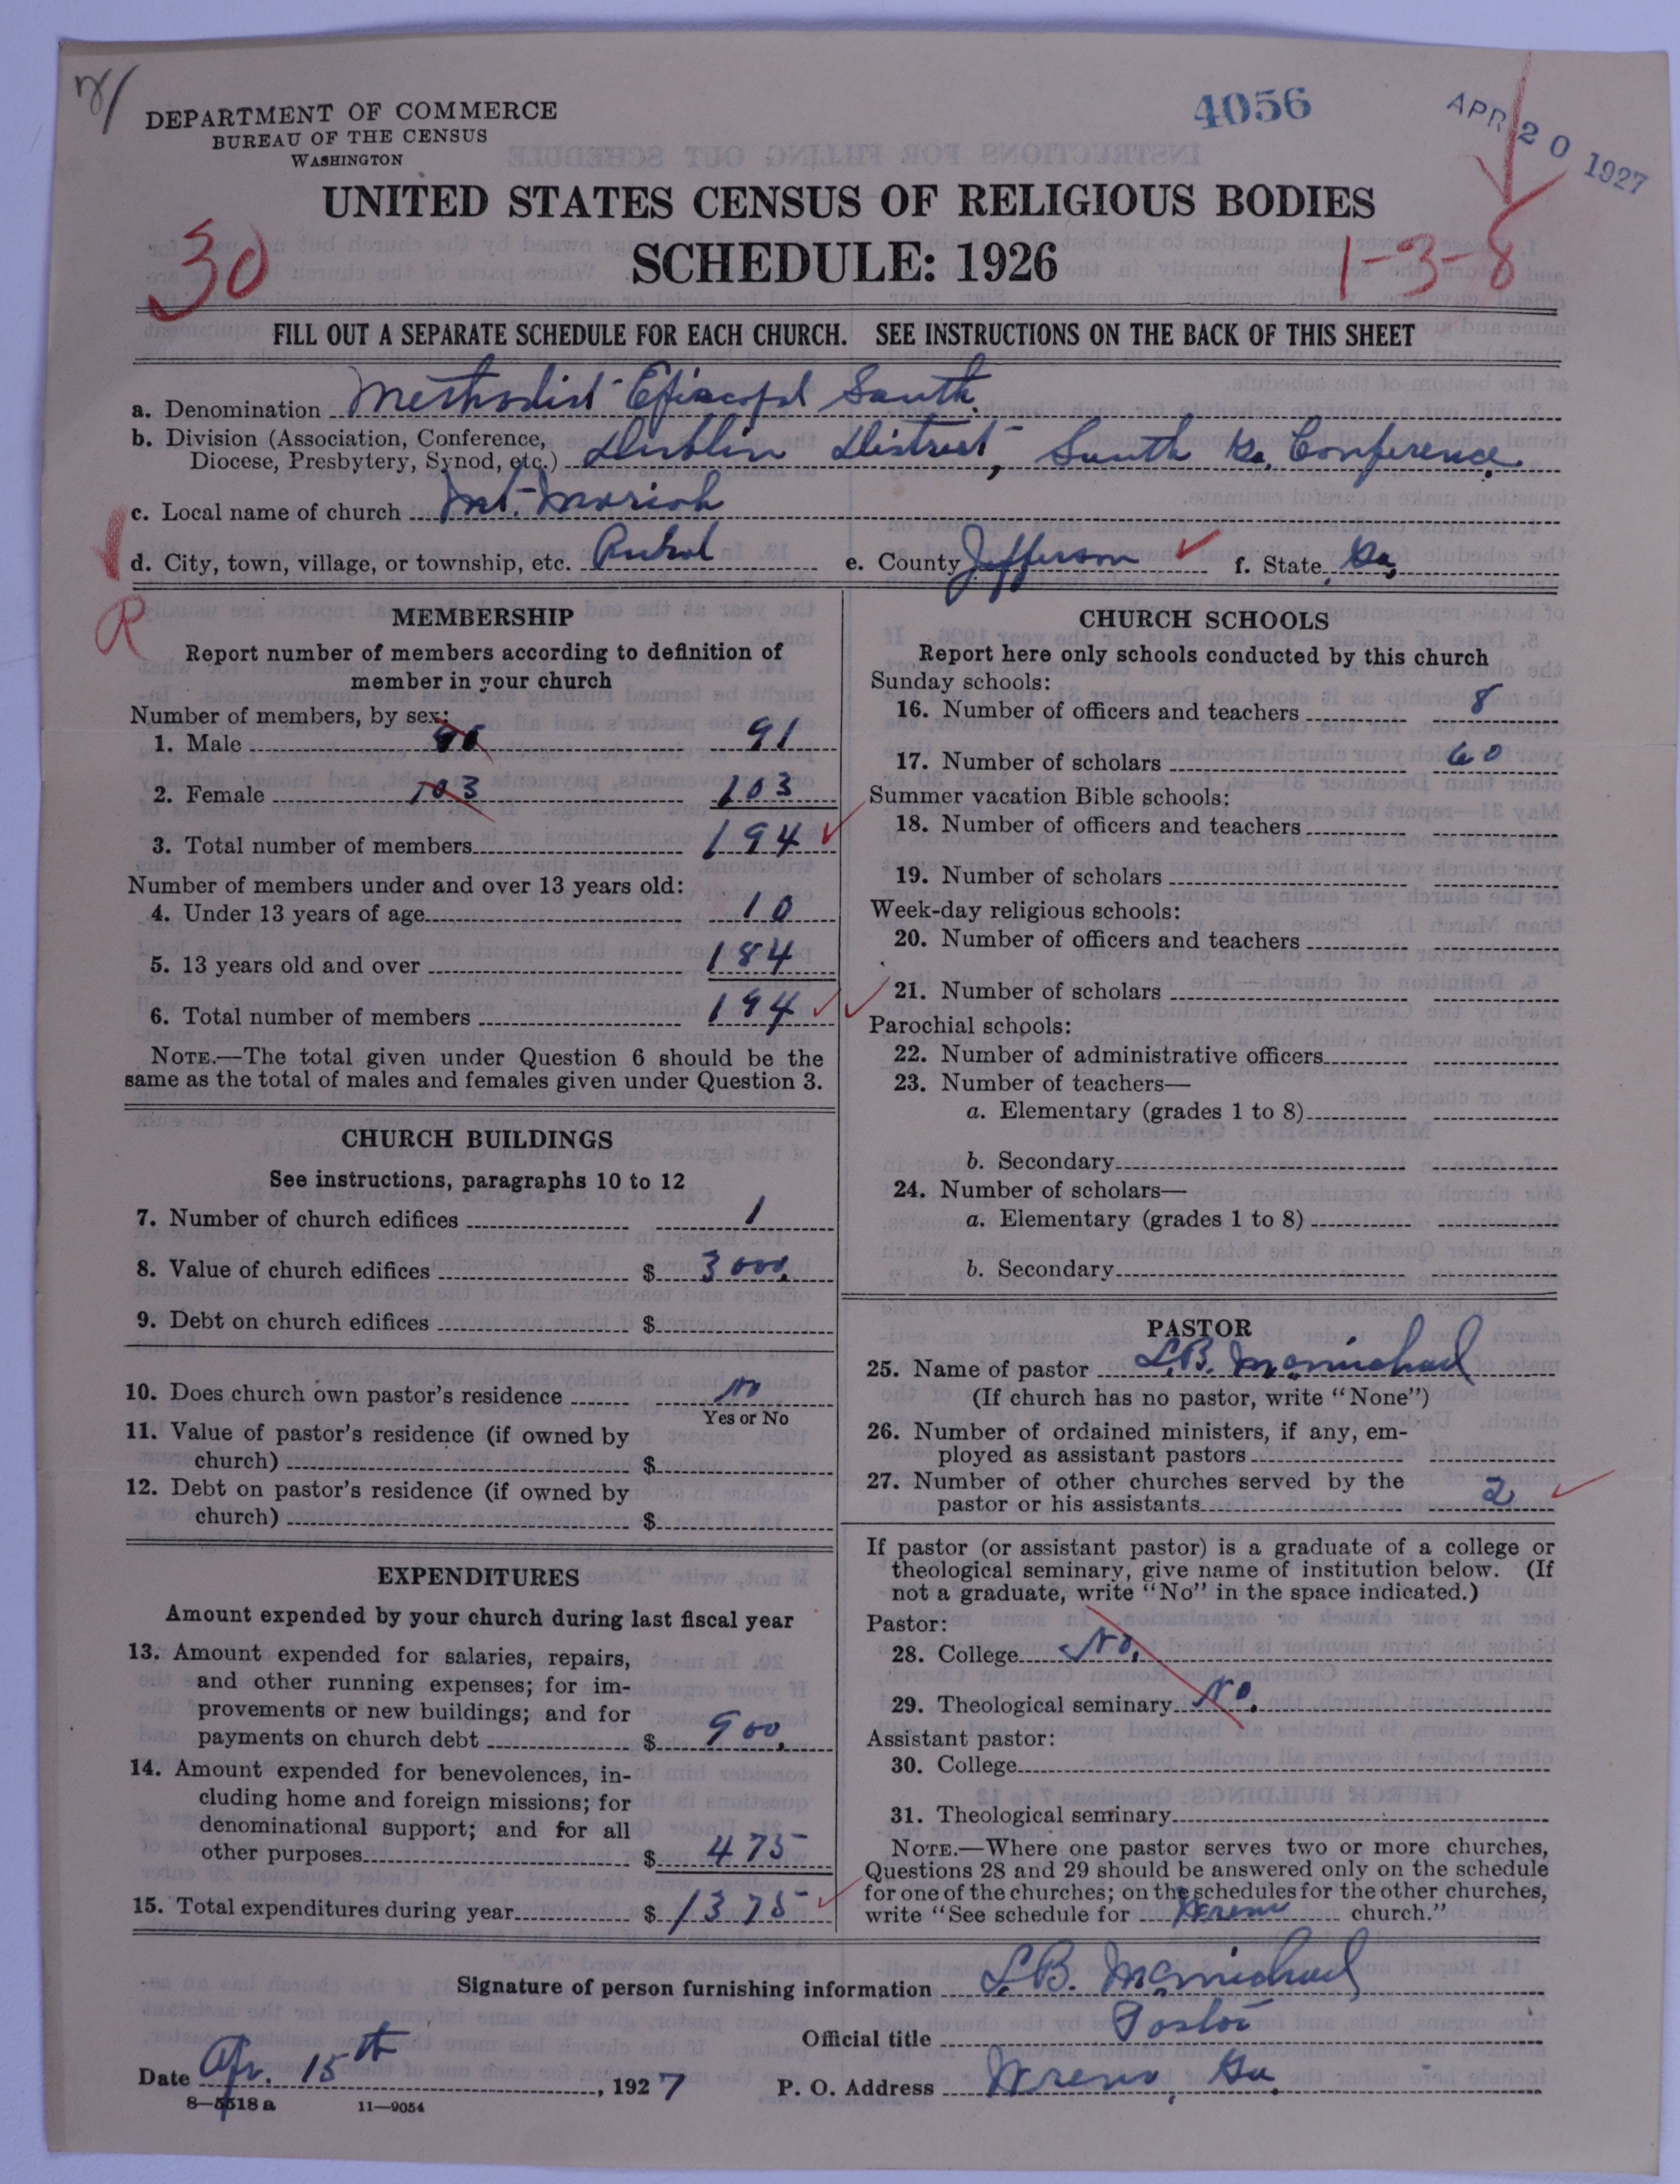 4056
APR 20 1927
DEPARTMENT OF COMMERCE
BUREAU OF THE CENSUS
WASHINGTON
UNITED STATES CENSUS OF RELIGIOUS BODIES
SCHEDULE: 1926
30
1-3-8
FILL OUT A SEPARATE SCHEDULE FOR EACH CHURCH. SEE INSTRUCTIONS ON THE BACK OF THIS SHEET
a. Denomination Methodist Episcopal South.
b. Division (Association, Conference,
Diocese, Presbytery, Synod, etc.) Dublin District, South Ga. Conference.
c. Local name of church Mt. Moriah
d. City, town, village, or township, etc. Rural e. County Jefferson f. State Ga,
R
MEMBERSHIP
Report number of members according to definition of
member in your church
Number of members, by sex:
1. Male 91
2. Female 103 103
3. Total number of members 194
Number of members under and over 13 years old:
4. Under 13 years of age 10
5. 13 years old and over 184
6. Total number of members 194
NOTE.—The total given under Question 6 should be the
same as the total of males and females given under Question 3.
CHURCH BUILDINGS
See instructions, paragraphs 10 to 12
7. Number of church edifices 1
8. Value of church edifices $ 3000.
9. Debt on church edifices $
10. Does church own pastor's residence no
Yes or No
11. Value of pastor's residence (if owned by
church) $
12. Debt on pastor's residence (if owned by
church) $
EXPENDITURES
Amount expended by your church during last fiscal year
13. Amount expended for salaries, repairs,
and other running expenses; for im-
provements or new buildings; and for
payments on church debt $ 900.
14. Amount expended for benevolences, in-
cluding home and foreign missions; for
denominational support; and for all
other purposes $ 475
15. Total expenditures during year $ 1375
CHURCH SCHOOLS
Report here only schools conducted by this church
Sunday schools:
16. Number of officers and teachers 8
17. Number of scholars 60
Summer vacation Bible schools:
18. Number of officers and teachers
19. Number of scholars
Week-day religious schools:
20. Number of officers and teachers
21. Number of scholars
Parochial schools:
22. Number of administrative officers
23. Number of teachers—
a. Elementary (grades 1 to 8)
b. Secondary
24. Number of scholars—
a. Elementary (grades 1 to 8)
b. Secondary
PASTOR
25. Name of pastor L.B. McMichael
(If church has no pastor, write "None")
26. Number of ordained ministers, if any, em-
ployed as assistant pastors
27. Number of other churches served by the
pastor or his assistants 2
If pastor (or assistant pastor) is a graduate of a college or
theological seminary, give name of institution below. (If
not a graduate, write "No" in the space indicated.)
Pastor:
28. College No.
29. Theological seminary No.
Assistant pastor:
30. College
31. Theological seminary
NOTE.—Where one pastor serves two or more churches,
Questions 28 and 29 should be answered only on the schedule
for one of the churches; on the schedules for the other churches,
write "See schedule for Wrens church."
Signature of person furnishing information L.B. McMichael
Official title Pastor
Date Apr. 15th, 1927 P. O. Address Wrens, Ga.
8—5518 a 11—9054